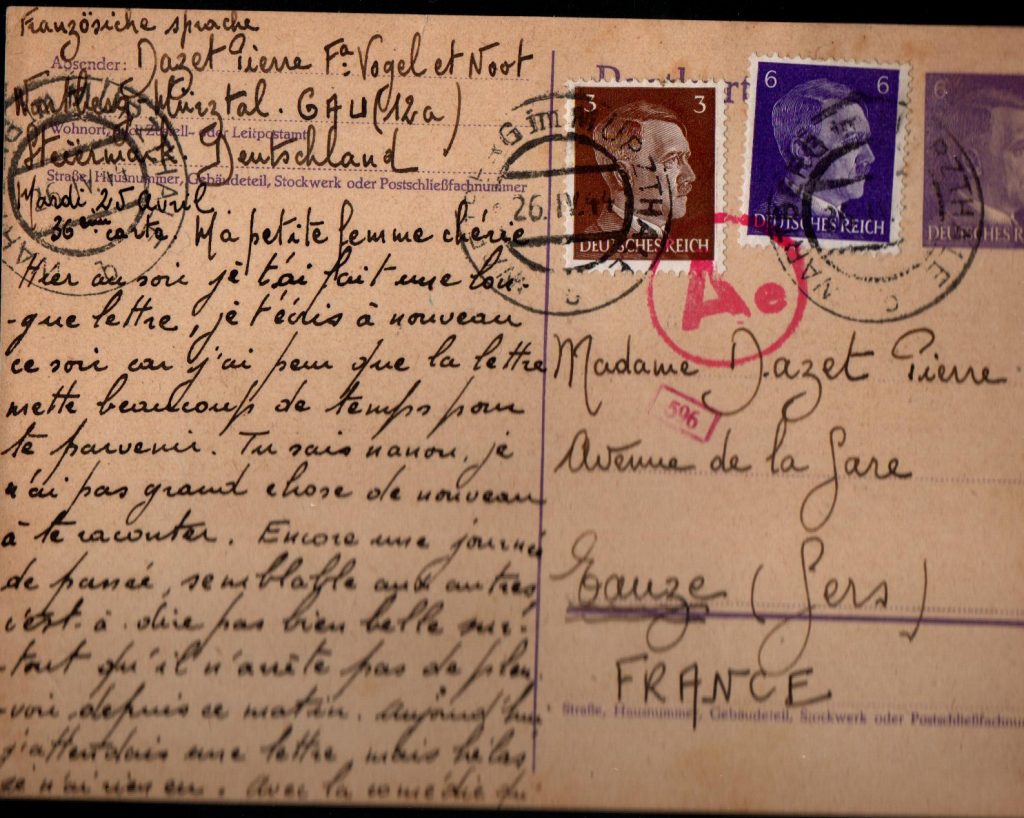 Französiche sprache
Absender: Dazet Pierre Fa: Vogel et Noot
Mürztal. GAU (12a)
Wohnort, auch Zustell- oder Leitpostamt
Steiermark. Deutschland
Straße, Hausnummer, Gebäudeteil, Stockwerk oder Postschließfachnummer
Mardi 25 avril
36eme carte. Ma petite femme chérie
Hier au soir je t'ai fait une lon-
-gue lettre, je t'écris à nouveau
ce soir car j'ai peur que la lettre
mette beaucoup de temps pour
te parvenir. Tu sais nanou, je
n'ai pas grand chose de nouveau
à te raconter. Encore une journée
de passée, semblable aux autres
c'est-à-dire pas bien belle sur-
-tout qu'il n'arrête pas de pleu-
-voir depuis ce matin. Aujourd'hui
j'attendais une lettre, mais hélas
je n'ai rien eu. Avec la comédie du
Postkarte
3 3
DEUTSCHES REICH
6 6
DEUTSCHES REICH
6
DEUTSCHES R
26.IV.44
Ae
596
Madame Dazet Pierre
Avenue de la Gare
Eauze (Gers)
FRANCE
Straße, Hausnummer, Gebäudeteil, Stockwerk oder Postschließfachnum